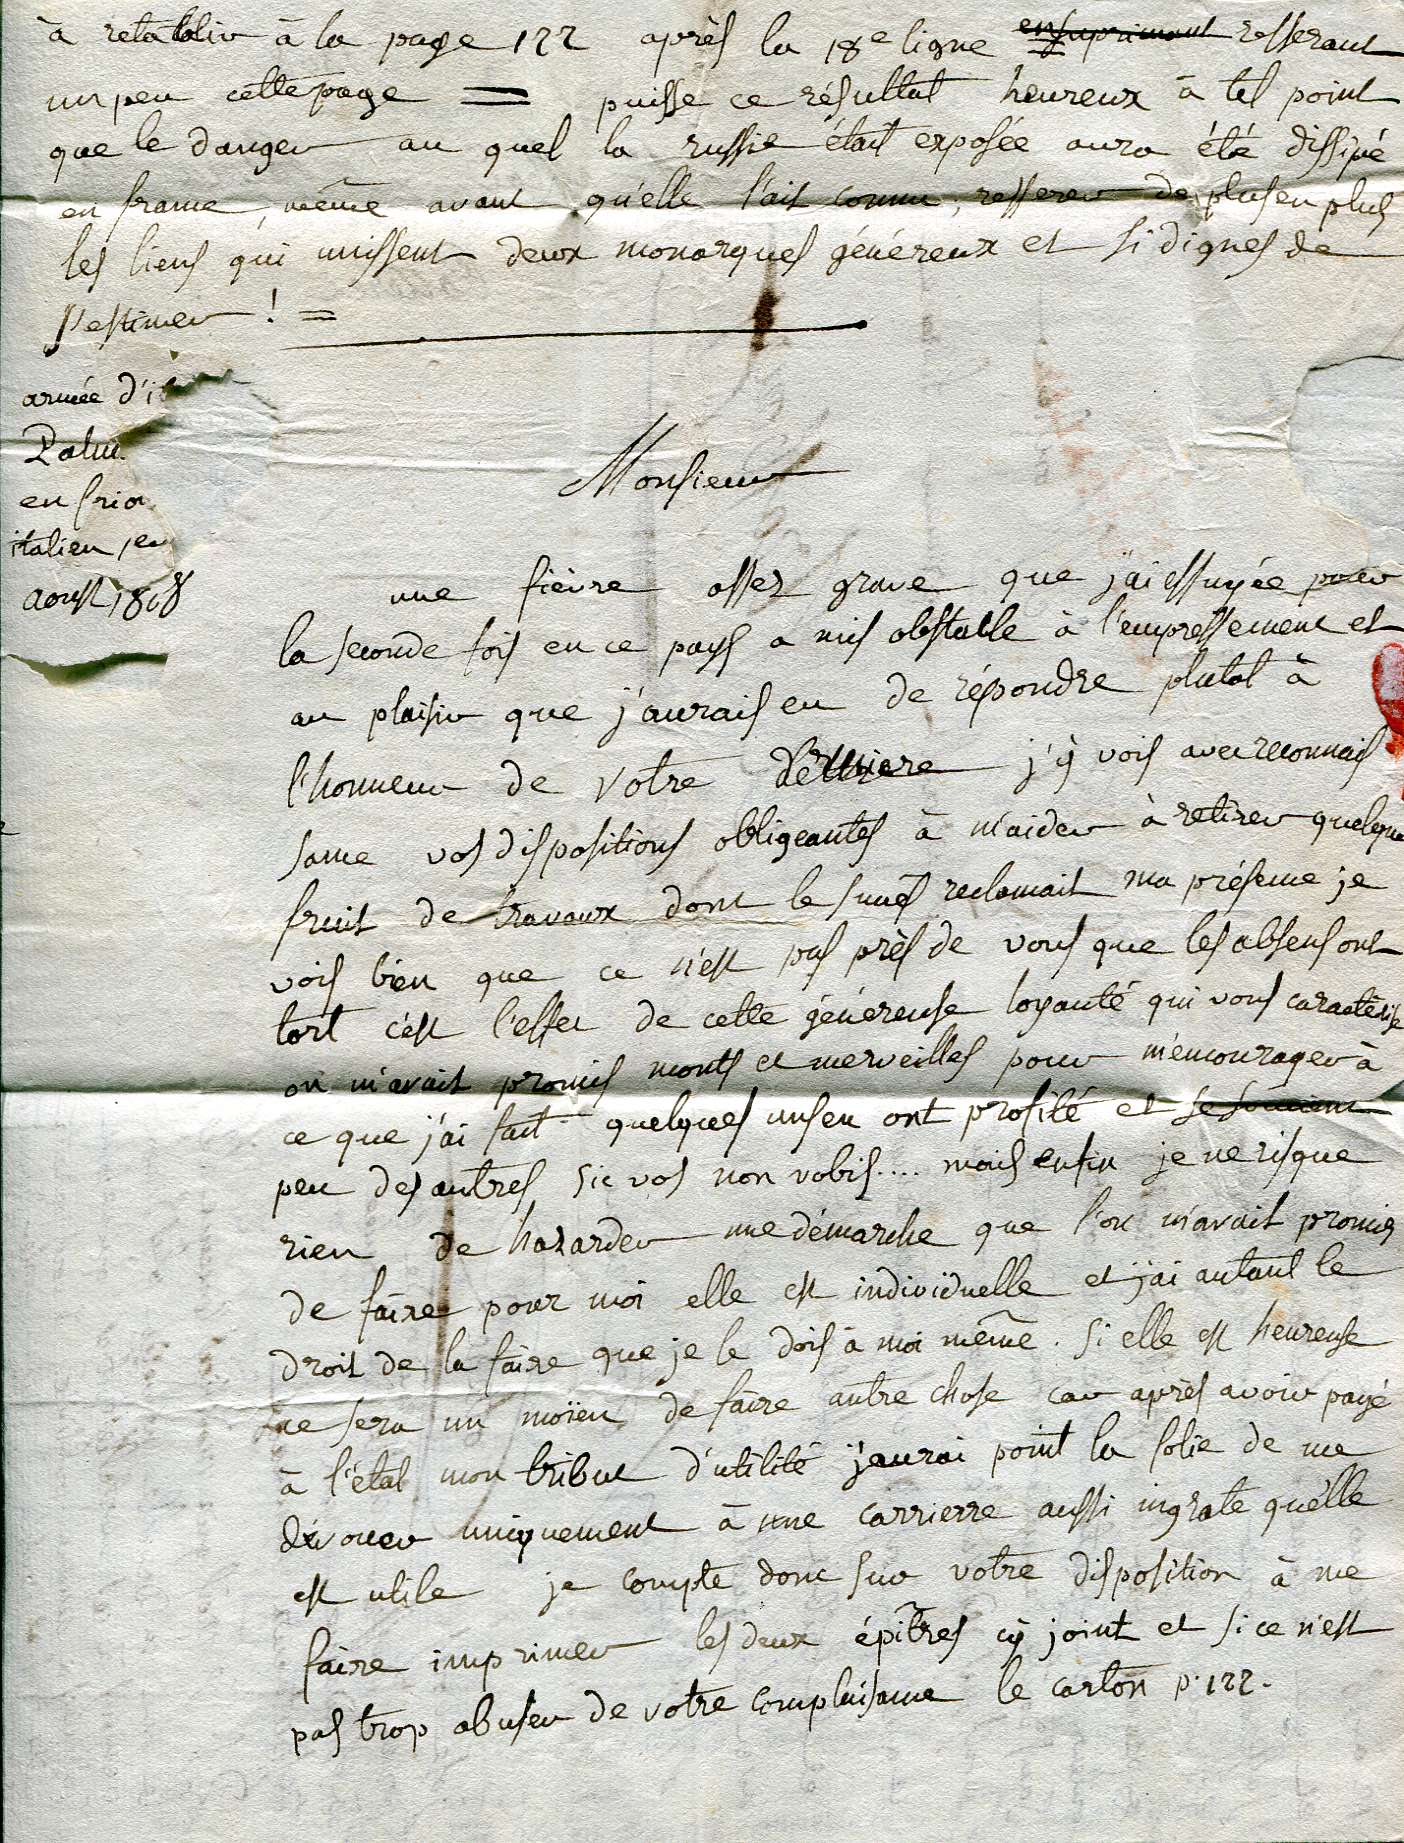 à retablir à la page 122 après la 18e ligne en suprimant resserant
un peu cette page = puisse ce résultat heureux à tel point
que le danger au quel la russie était exposée aura été dissipé
en france, même avant qu'elle l'ait connu, resserer de plus en plus
les liens qui unissent deux monarques généreux et si dignes de
s'estimer ! =
armée d'it
Palm
en frio
italien, en
Aoust 1808
Monsieur
une fièvre assez grave que j'ai essuyée pour
la seconde fois en ce pays a mis obstacle à l'empressement et
au plaisir que j'aurais eu de répondre plutot à
l'honneur de votre derniere j'ÿ vois avec reconnais
sance vos dispositions obligeantes à m'aider à retirer quelque
fruit de travaux dont le succès reclamait ma présence je
vois bien que ce n'est pas près de vous que les absens ont
tort c'est l'effet de cette généreuse loyauté qui vous caractérise
on m'avait promis monts et merveilles pour m'encourager à
ce que j'ai fait quelques uns en ont profité et se soucient
peu des autres sic vos non vobis.... mais enfin je ne risque
rien de hazarder une démarche que l'on m'avait promis
de faire pour moi elle est individuelle et j'ai autant le
droit de la faire que je le dois à moi même. Si elle est heureuse
ce sera un moïen de faire autre chose car après avoir payé
à l'état mon tribut d'utilité j'aurai point la folie de me
dévouer uniquement à une carrierre aussi ingrate qu'elle
est utile je compte donc sur votre disposition à me
faire imprimer les deux épîtres cÿ joint et si ce n'est
pas trop abuser de votre complaisance le carton p. 122.